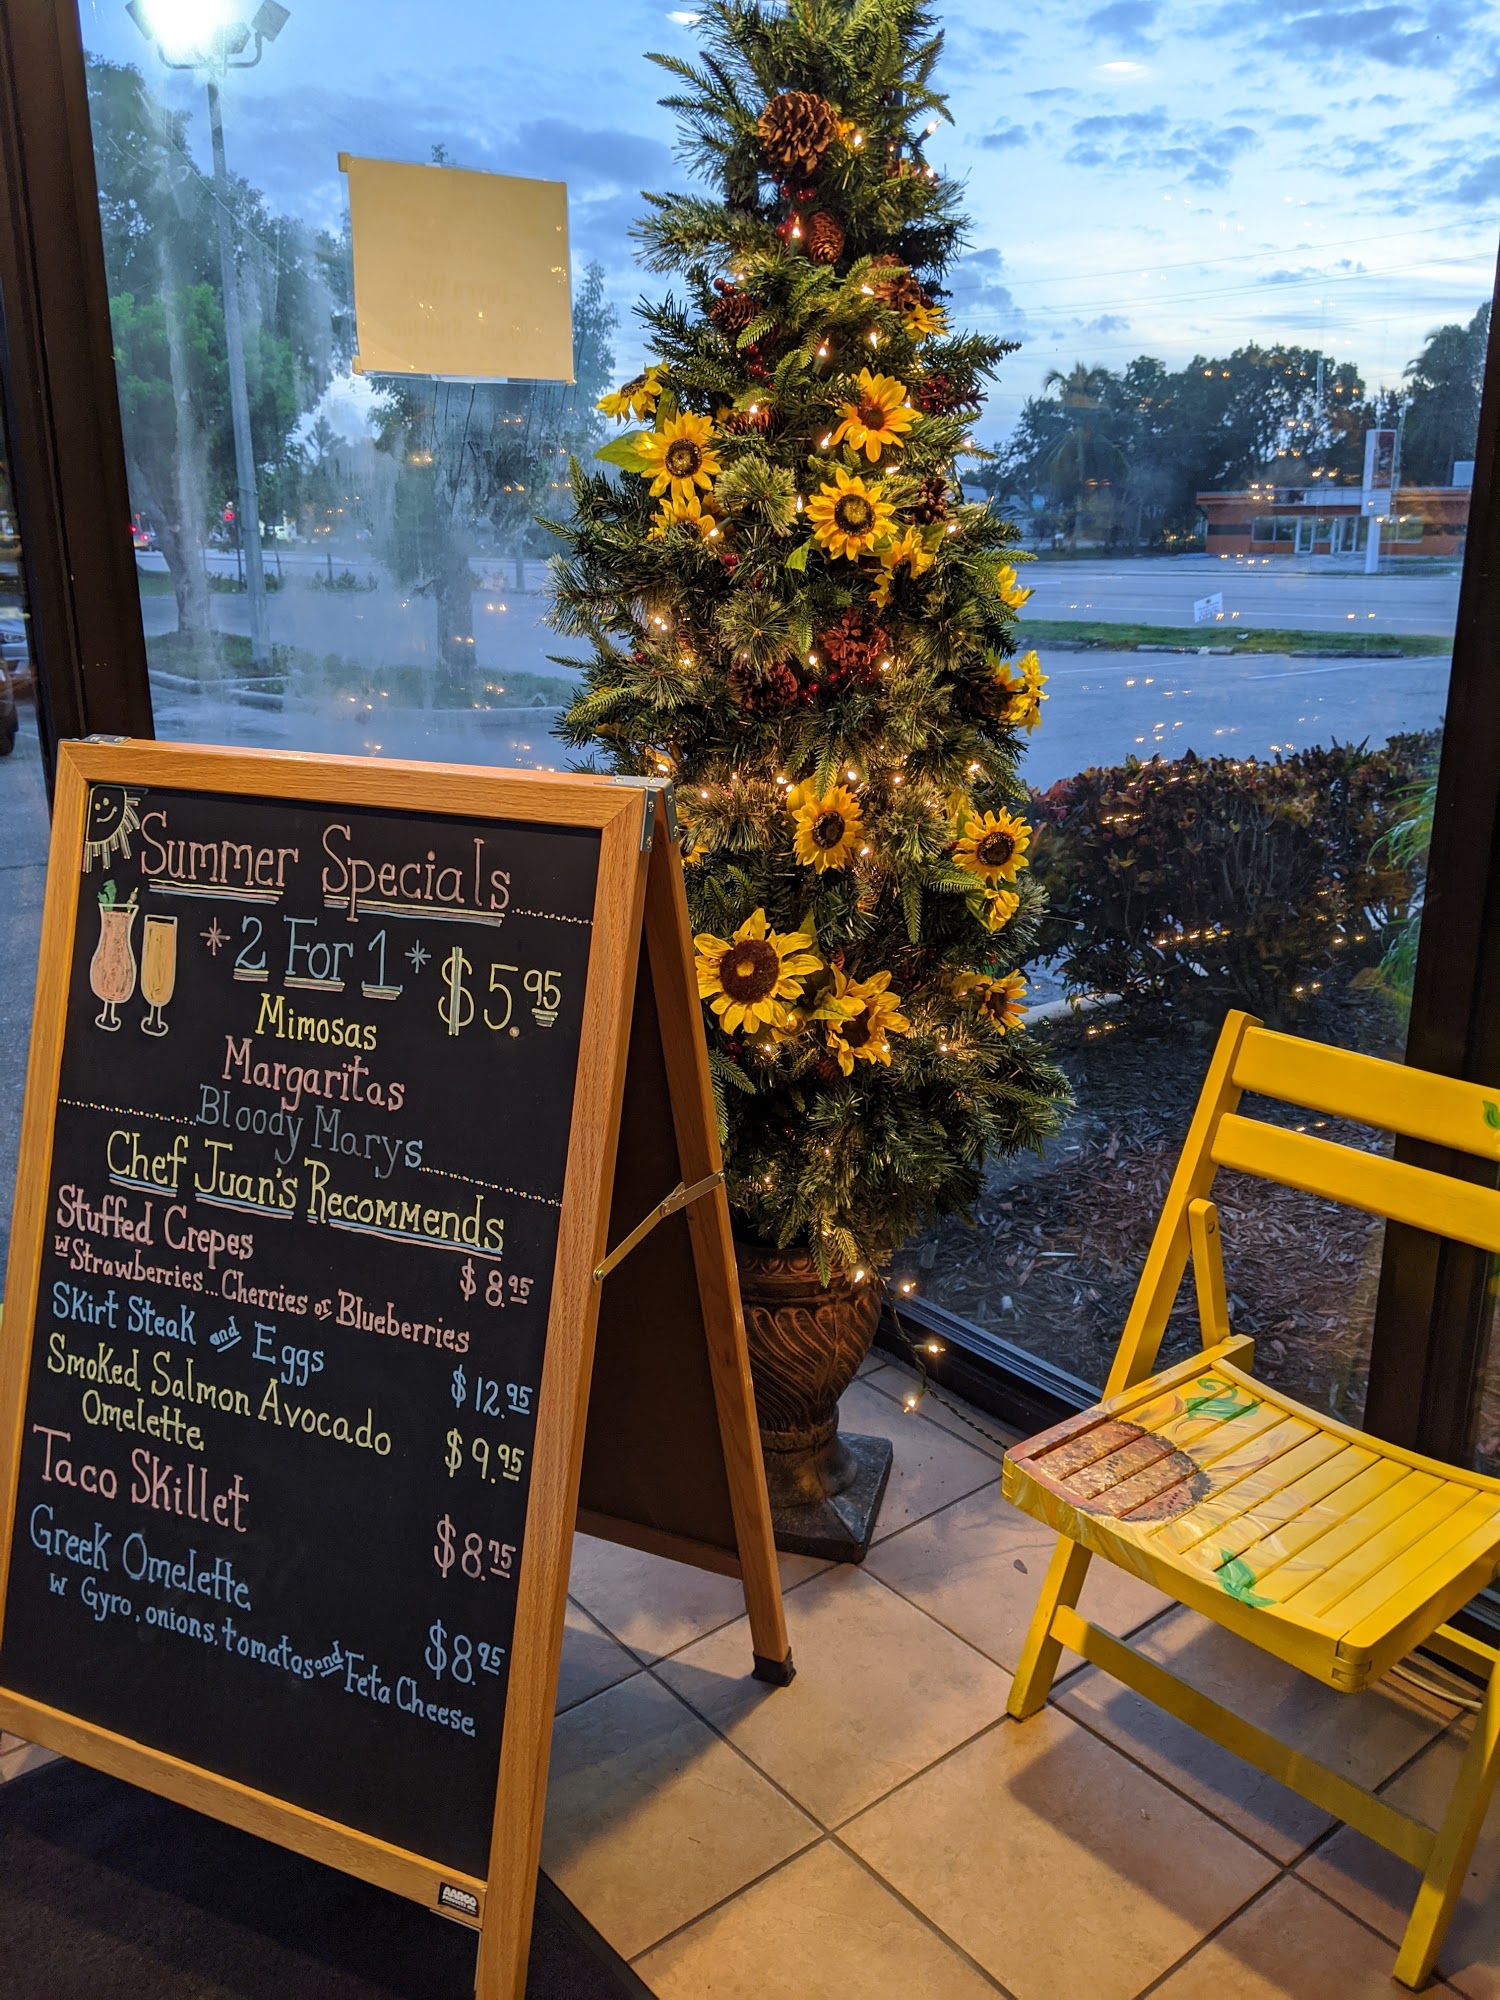 Summer Specials
*2 For 1* $5.95
Mimosas
Margaritas
Bloody Marys
Chef Juan's Recommends
Stuffed Crepes
w Strawberries... Cherries or Blueberries $8.95
Skirt Steak and Eggs $12.95
Smoked Salmon Avocado
Omelette $9.95
Taco Skillet $8.75
Greek Omelette $8.95
w Gyro, onions, tomatos and Feta Cheese
AARCO